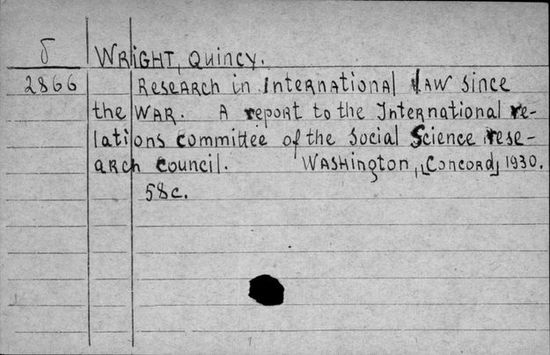 δ WRIGHT, Quincy.
2866 Research in International law since
the war. A report to the International re-
lations committee of the Social Science rese-
arch council. Washington, [Concord] 1930.
58c.